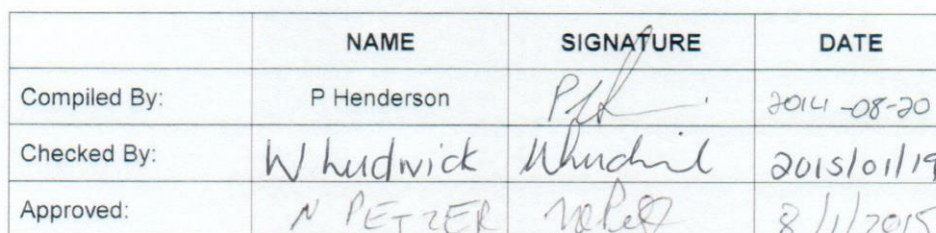 NAME SIGNATURE DATE
Compiled By: P Henderson 2014-08-20
Checked By: W Ludwick 2015/01/19
Approved: N PETZER 8/1/2015